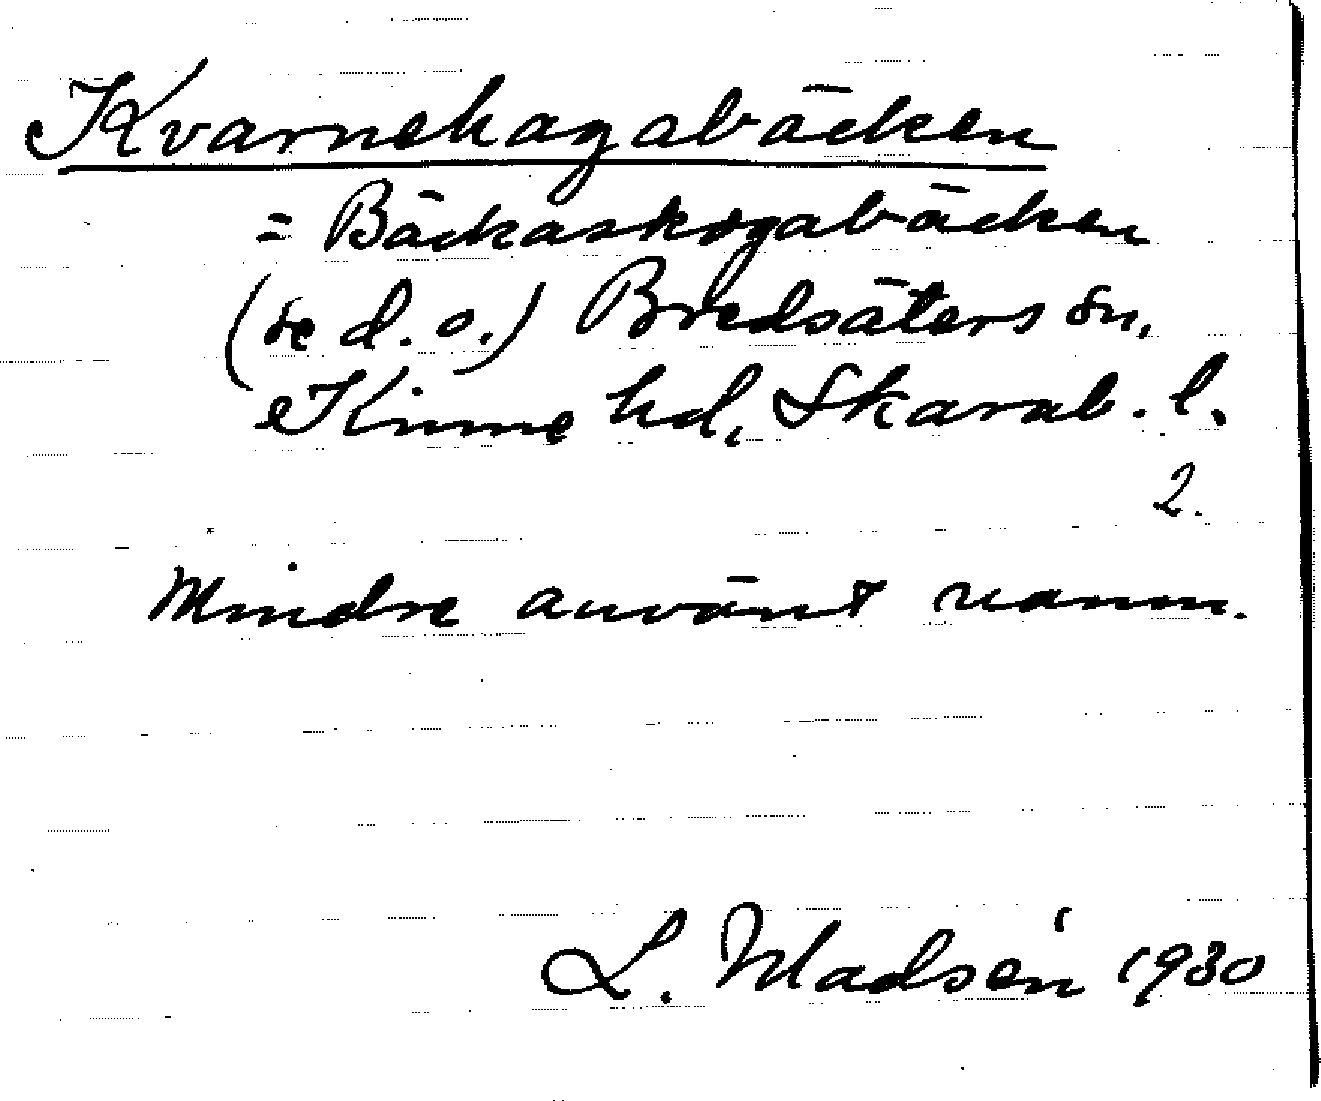 Kvarnehagabäcken
= Bäckaskogabäcken
(se d. o.) Bredsäters sn,
Kinne hd, Skarab. l.
2.
Mindre använt namn.
L. Madsén 1930